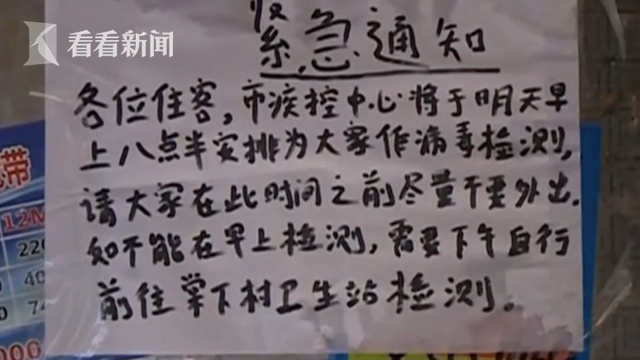 看看新闻
紧急通知
各位住客，市疾控中心将于明天早
上八点半安排为大家作病毒检测，
请大家在此时间之前尽量不要外出．
如不能在早上检测，需要下午自行
前往棠下村卫生站检测。
带
12M
220
40
00
74